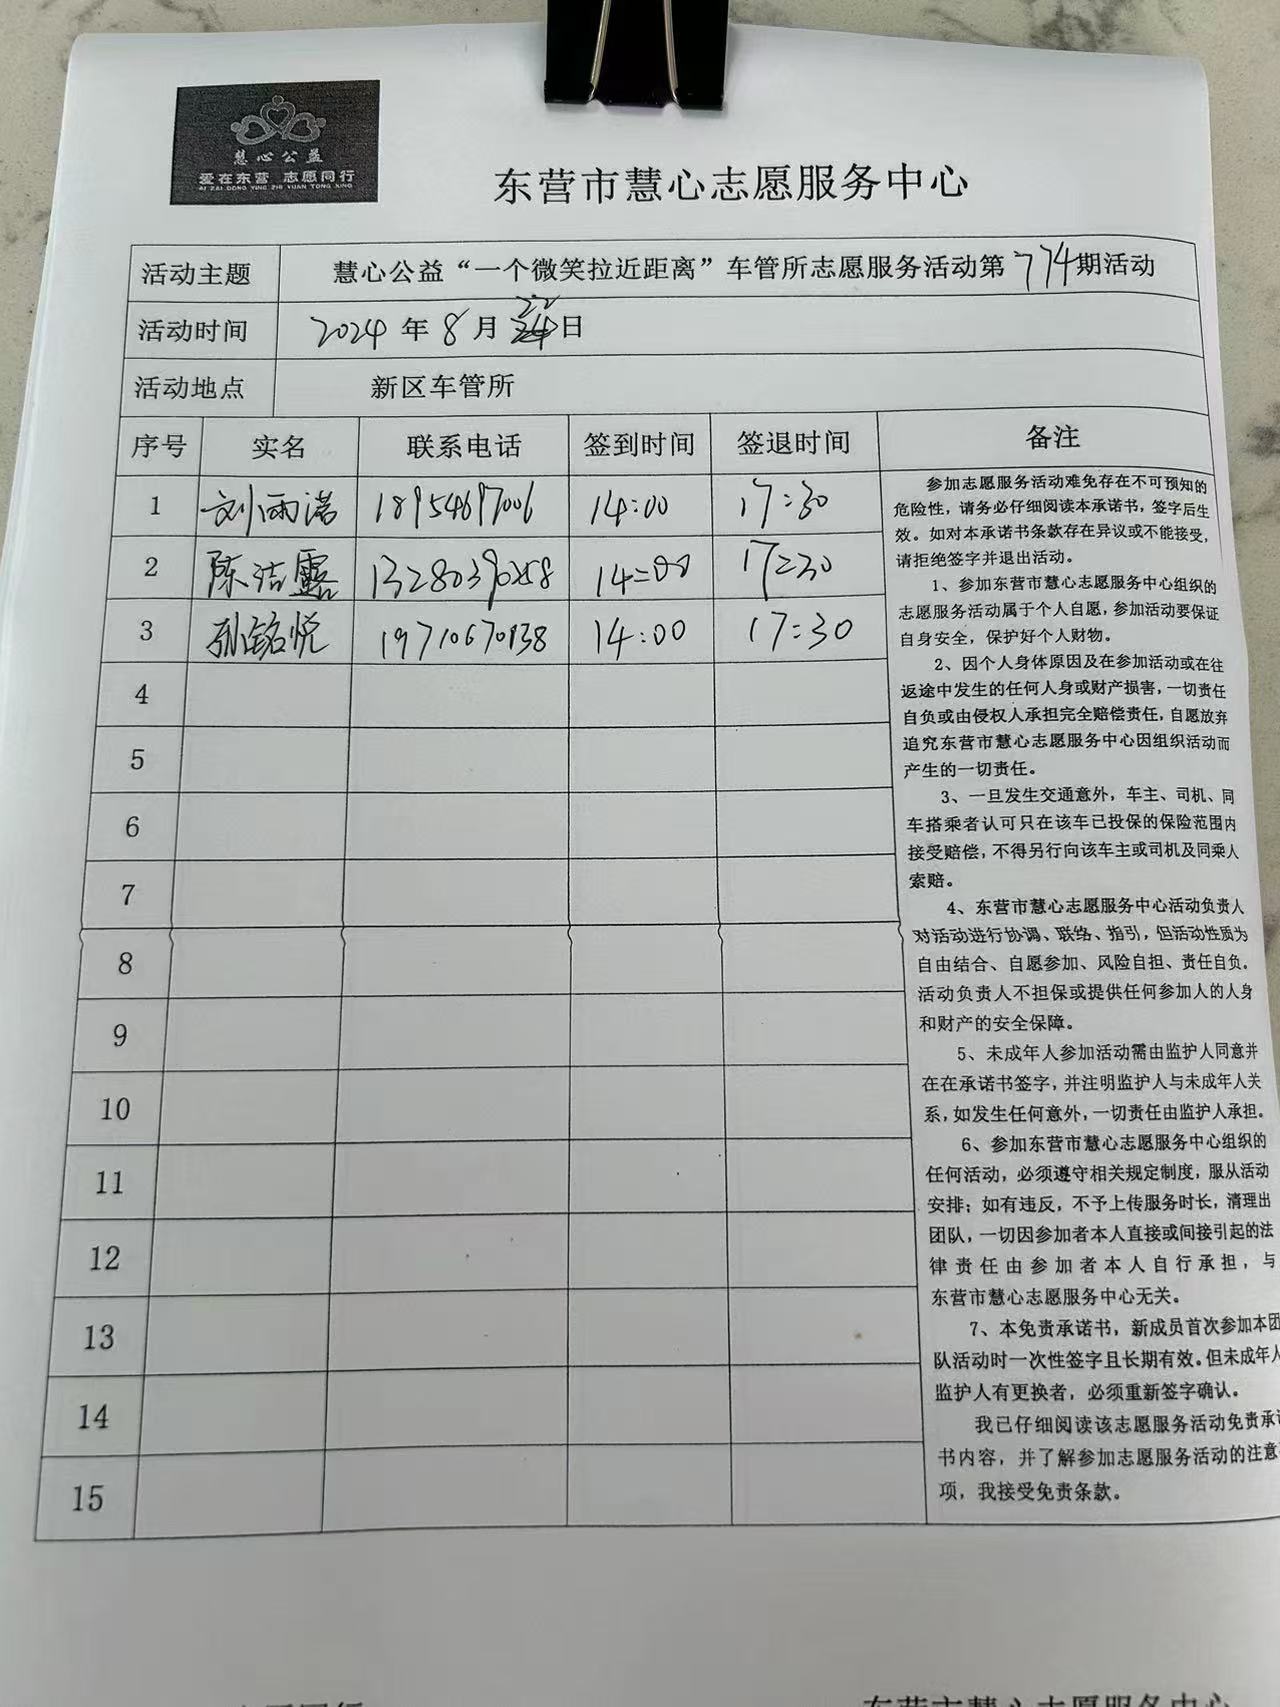 慧心公益
爱在东营 志愿同行
AI ZAI DONG YING ZHI YUAN TONG XING
东营市慧心志愿服务中心
活动主题 慧心公益“一个微笑拉近距离”车管所志愿服务活动第774期活动
活动时间 2024年8月22日
活动地点 新区车管所
序号 实名 联系电话 签到时间 签退时间 备注
1 刘雨诺 18954697006 14:00 17:30
2 陈洁露 14:00 17:30
3 孙铭悦 19710670138 14:00 17:30
4
5
6
7
8
9
10
11
12
13
14
15
参加志愿服务活动难免存在不可预知的
危险性，请务必仔细阅读本承诺书，签字后生
效。如对本承诺书条款存在异议或不能接受，
请拒绝签字并退出活动。
1、参加东营市慧心志愿服务中心组织的
志愿服务活动属于个人自愿，参加活动要保证
自身安全，保护好个人财物。
2、因个人身体原因及在参加活动或在往
返途中发生的任何人身或财产损害，一切责任
自负或由侵权人承担完全赔偿责任，自愿放弃
追究东营市慧心志愿服务中心因组织活动而
产生的一切责任。
3、一旦发生交通意外，车主、司机、同
车搭乘者认可只在该车已投保的保险范围内
接受赔偿，不得另行向该车主或司机及同乘人
索赔。
4、东营市慧心志愿服务中心活动负责人
对活动进行协调、联络、指引，但活动性质为
自由结合、自愿参加、风险自担、责任自负。
活动负责人不担保或提供任何参加人的人身
和财产的安全保障。
5、未成年人参加活动需由监护人同意并
在在承诺书签字，并注明监护人与未成年人关
系，如发生任何意外，一切责任由监护人承担。
6、参加东营市慧心志愿服务中心组织的
任何活动，必须遵守相关规定制度，服从活动
安排；如有违反，不予上传服务时长，清理出
团队，一切因参加者本人直接或间接引起的法
律责任由参加者本人自行承担，与
东营市慧心志愿服务中心无关。
7、本免责承诺书，新成员首次参加本团
队活动时一次性签字且长期有效。但未成年人
监护人有更换者，必须重新签字确认。
我已仔细阅读该志愿服务活动免责承诺
书内容，并了解参加志愿服务活动的注意
项，我接受免责条款。
东营市慧心志愿服务中心